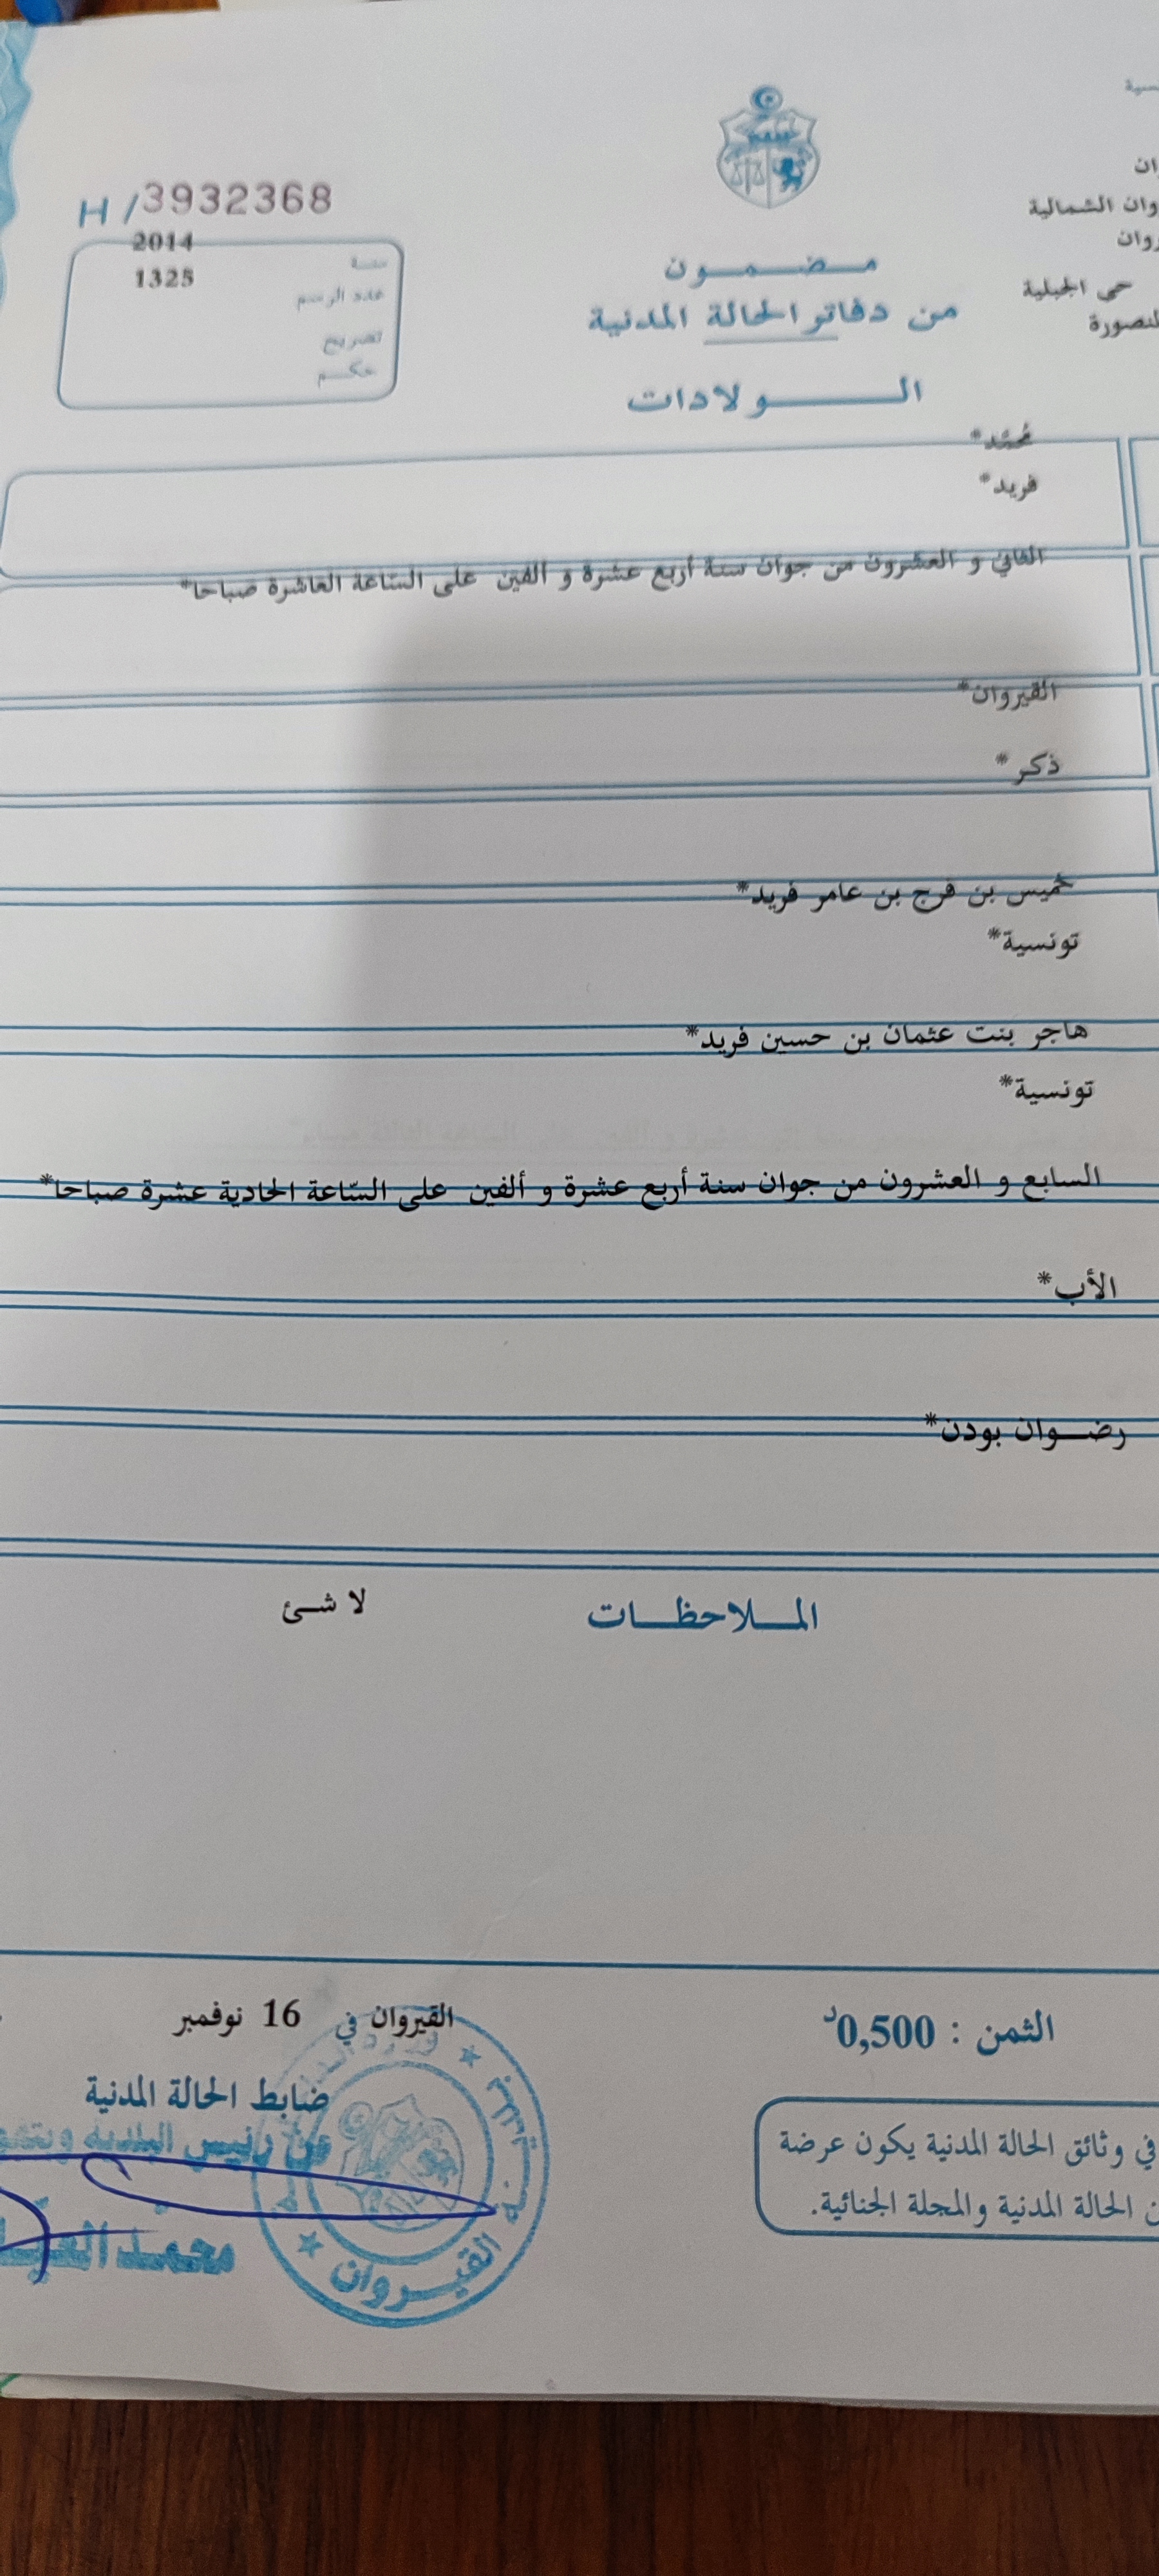 وان الشمالية
حي الجبلية
H/3932368
2014
سنة
1325
عدد الرسم
تصريح
حكم
مضمون
من دفاتر الحالة المدنية
الولادات
محمد*
فريد*
الثاني و العشرون من جوان سنة أربع عشرة و ألفين على الساعة العاشرة صباحا*
القيروان*
ذكر*
خميس بن فرج بن عامر فريد*
تونسية*
هاجر بنت عثمان بن حسين فريد*
تونسية*
السابع و العشرون من جوان سنة أربع عشرة و ألفين على السّاعة الحادية عشرة صباحا*
الأب*
رضوان بودن*
الملاحظات
لا شئ
الثمن : 0,500د
القيروان في 16 نوفمبر
ضابط الحالة المدنية
عن رئيس البلدية
محمد
القيروان
في وثائق الحالة المدنية يكون عرضة
الحالة المدنية والمجلة الجنائية.